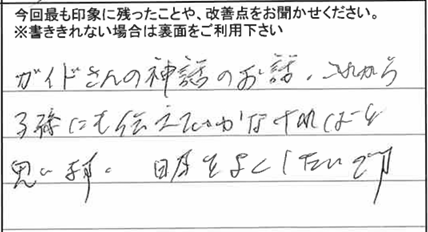 今回最も印象に残ったことや、改善点をお聞かせください。
※書ききれない場合は裏面をご利用下さい
ガイドさんの神話のお話、これから
子孫にも伝えていかなければと
思います。日本をよくしたいです